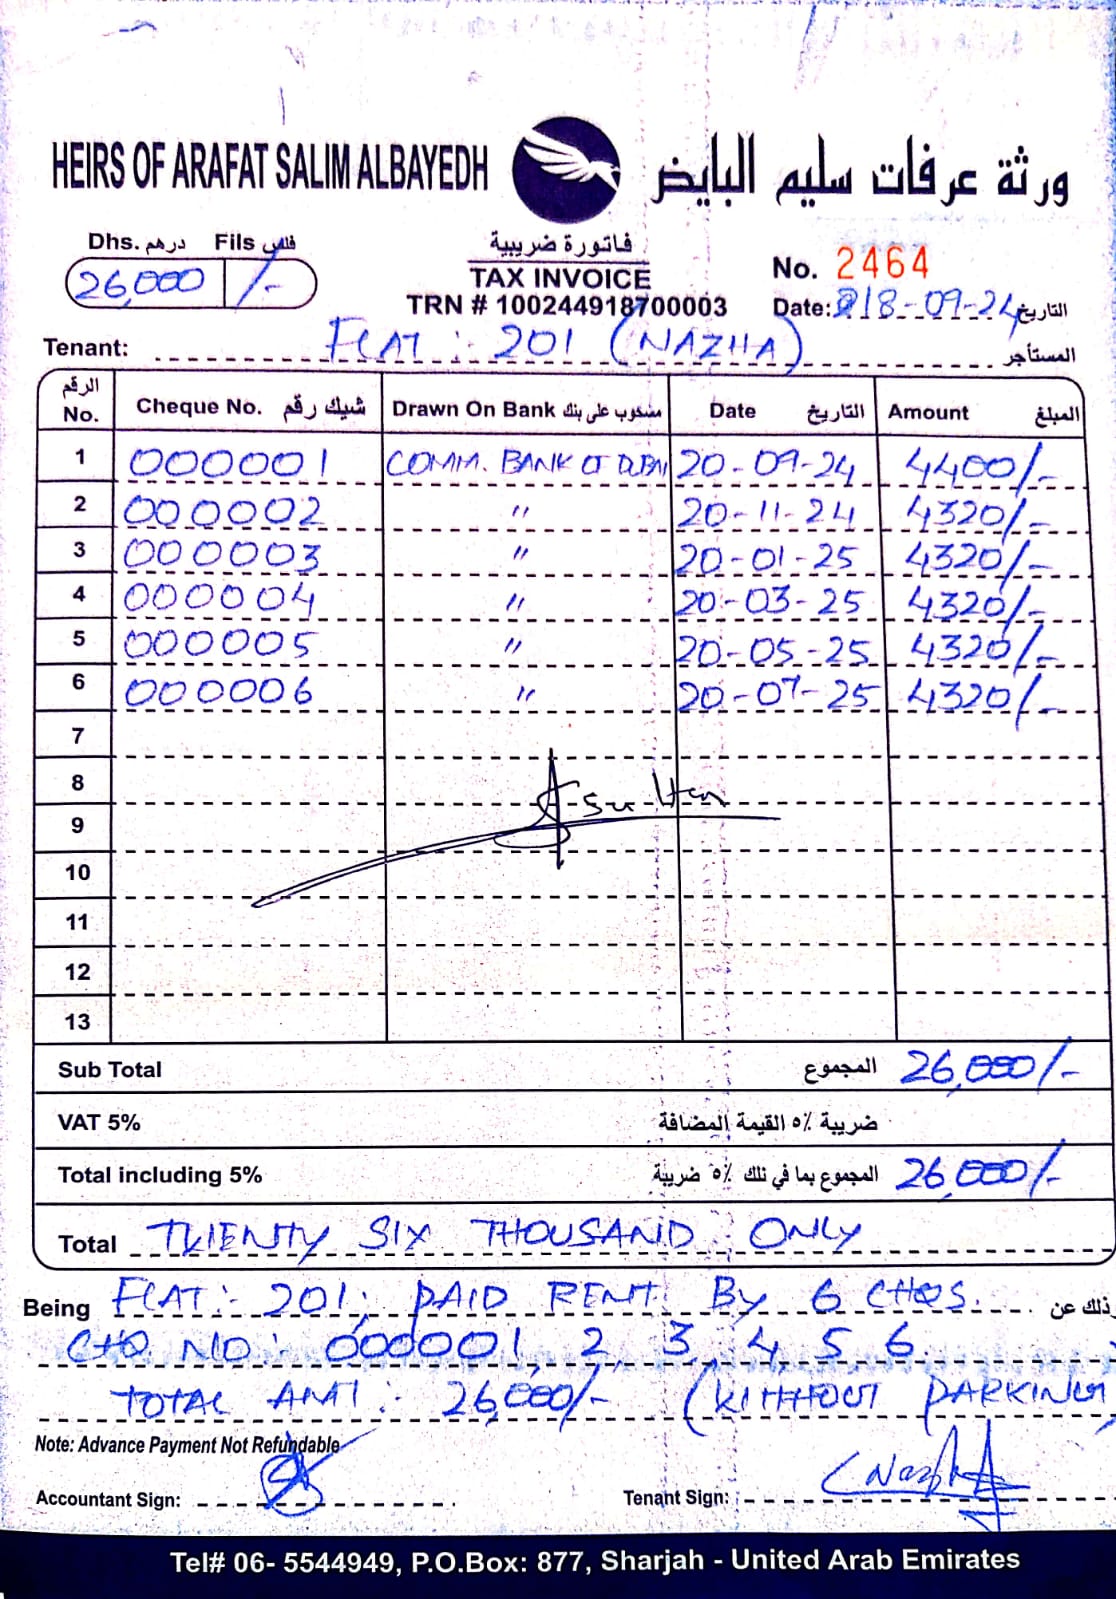 HEIRS OF ARAFAT SALIM ALBAYEDH ورثة عرفات سليم البايض
Dhs. درهم Fils فلس
26,000 /-
فاتورة ضريبية
TAX INVOICE
TRN # 100244918700003
No. 2464
Date: 18-09-24 التاريخ
Tenant: FLAT :- 201 (NAZHA) المستأجر
الرقم No. Cheque No. شيك رقم Drawn On Bank مسحوب على بنك Date التاريخ Amount المبلغ
1 000001 COMM. BANK OF DUBAI 20-09-24 4400/-
2 000002 " 20-11-24 4320/-
3 000003 " 20-01-25 4320/-
4 000004 " 20-03-25 4320/-
5 000005 " 20-05-25 4320/-
6 000006 " 20-07-25 4320/-
7
8
9
10
11
12
13
Sub Total المجموع 26,000/-
VAT 5% ضريبة ٥% القيمة المضافة
Total including 5% المجموع بما في ذلك ٥% ضريبة 26,000/-
Total TWENTY SIX THOUSAND ONLY
Being FLAT:- 201, PAID RENT BY 6 CHQS. ذلك عن
CHQ NO:- 000001, 2, 3, 4, 5, 6.
TOTAL AMT: 26,000/- (WITHOUT PARKING
Note: Advance Payment Not Refundable
Accountant Sign:
Tenant Sign:
Tel# 06- 5544949, P.O.Box: 877, Sharjah - United Arab Emirates